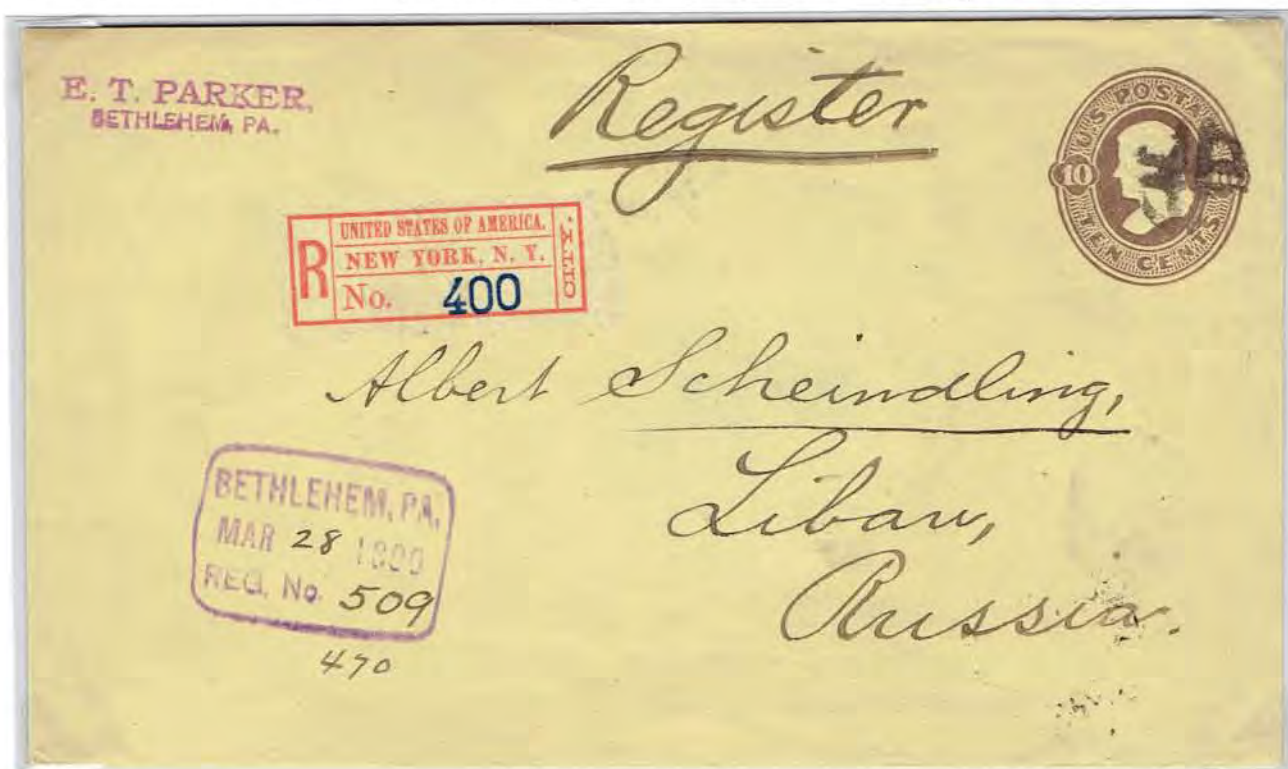 E. T. PARKER,
BETHLEHEM, PA.
Register
U.S. POSTAGE
10
TEN CENTS
R
UNITED STATES OF AMERICA.
NEW YORK, N. Y.
No. 400
Albert Scheindling,
Libau,
Russia.
BETHLEHEM, PA.
MAR 28
REG. No. 509
470